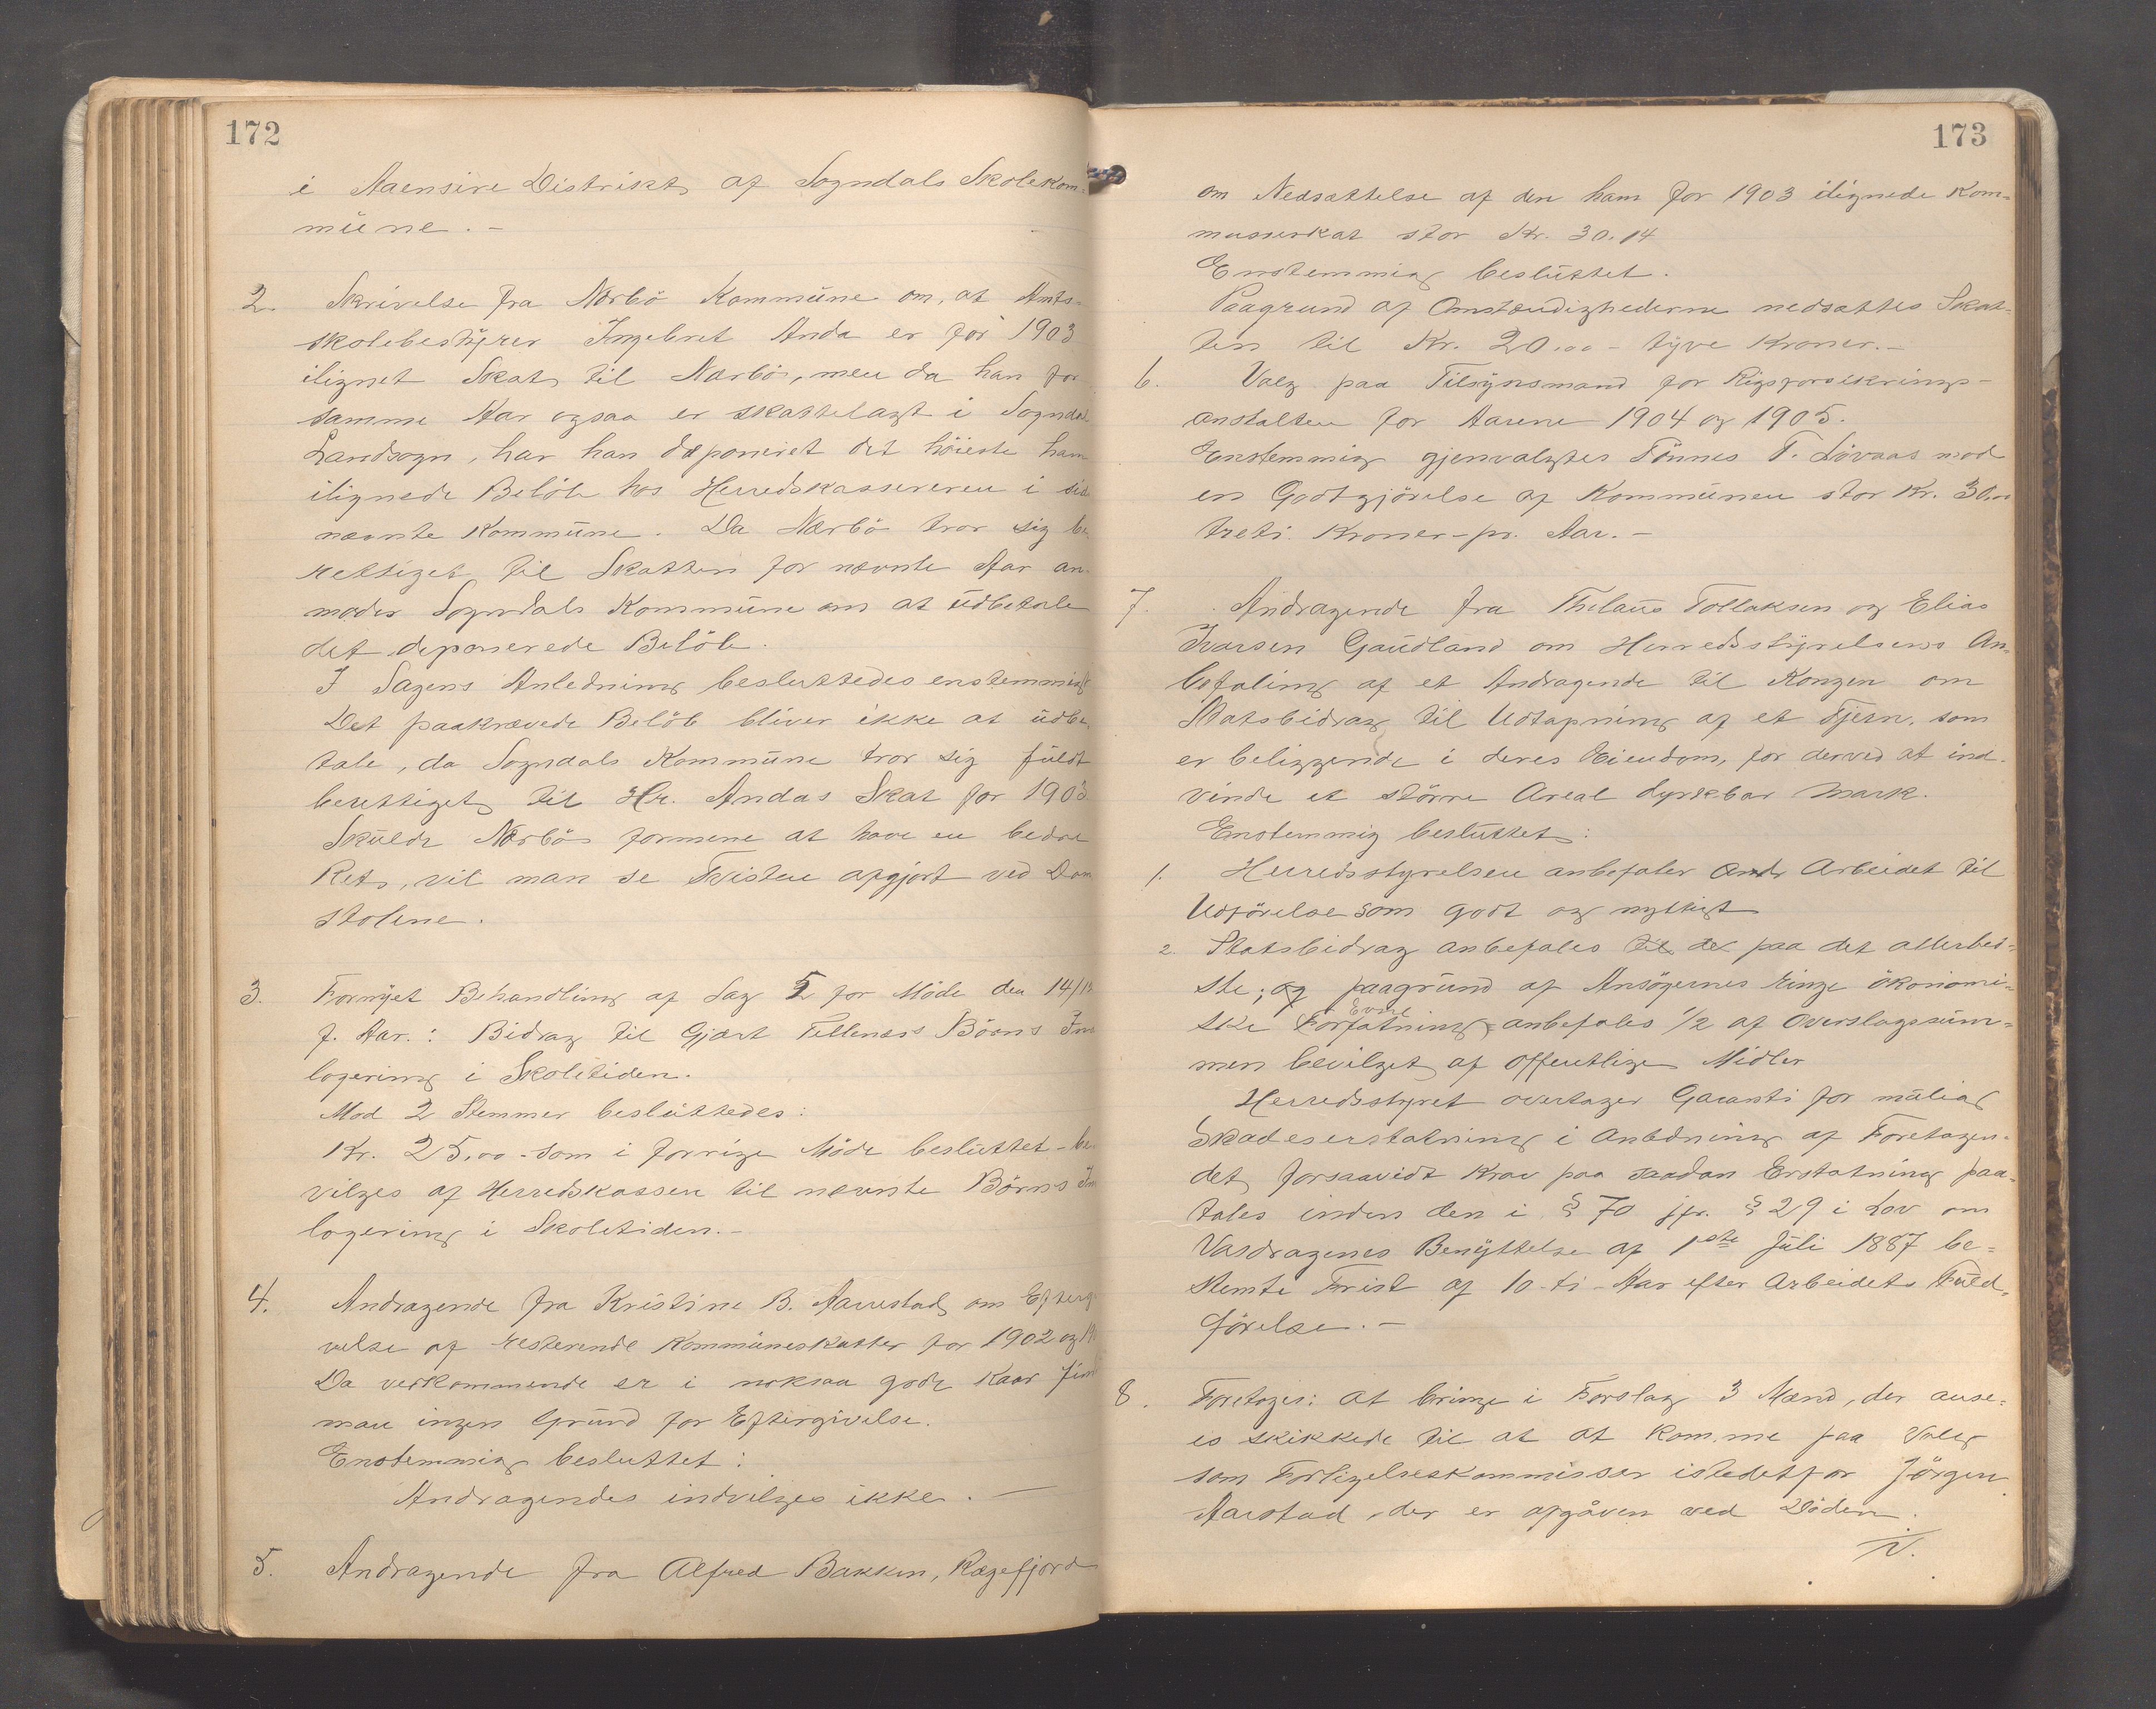 172
i Aaensire Distrikt af Sogndals Skolekom-
mune.-
2. Skrivelse fra Nærbö Kommune om, at Amts-
skolebestyrer Ingebret Anda er for 1903
ilignet Skat til Nærbö, men da han for
samme Aar ogsaa er skattelagt i Sogndal
Landsogn, har han deponeret det höieste ham
ilignede Belöb hos Herredskassereren i sid
nævnte Kommune. Da Nærbö tror sig be
rettiget til Skatten for nævnte Aar an-
moder Sogndals Kommune om at udbetale
det deponerede Belöb.
I Sagens Anledning besluttedes enstemmig
Det paakrævede Belöb bliver ikke at udbe-
tale, da Sogndals Kommune tror sig fuldt
berettiget til Hr. Andas Skat for 1903
Skulde Nærbö formene at have en bedre
Ret, vil man se Tvisten afgjort ved Dom
stolene.
3. Fornyet Behandling af Sag 5 for Möde den 14/
f. Aar.: Bidrag til Gjært Fellenes Börns In
logering i Skoletiden.
Mod 2 Stemmer besluttedes:
Kr. 25,00 - som i forrige Möde besluttet - be-
vilges af Herredskassen til nævnte Börns In
logering i Skoletiden.-
4. Andragende fra Kristine B. Aarrestad om Efterg
velse af resterende Kommuneskatter for 1902 og 19
Da vedkommende er i noksaa gode Kaar fin
man ingen Grund for Eftergivelse.
Enstemmig besluttet:
Andragendes indvilges ikke. -
5. Andragende fra Alfred Bakken, Rægefjord
173
om Nedsættelse af den ham for 1903 ilignede Kom-
muneskat stor Kr. 30.14
Enstemmig besluttet.
Paagrund af Omstændighederne nedsattes Skat-
ten til Kr. 20.00 - tyve Kroner.-
6. Valg paa Tilsynsmand for Rigsforsikrings-
anstalten for Aarene 1904 og 1905.
Enstemmig gjenvalgtes Tönnes T. Lövaas mod
en Godtgjörelse af Kommunen stor Kr. 30.00
treti Kroner - pr. Aar.-
7. Andragende fra Thelaus Tollaksen og Elias
Ivarsen Gaudland om Herredsstyrelsens An-
befaling af et Andragende til Kongen om
Statsbidrag til Udtapning af et Tjern, som
er beliggende i deres Eiendom, for derved at ind-
vinde et större Areal dyrkbar Mark.
Enstemmig besluttet:
1. Herredsstyrelsen anbefaler Arbeidet til
Udförelse som godt og nyttigt
2. Statsbidrag anbefales paa det allerbed-
ste; og paagrund af Ansögernes ringe ökonomi-
ske Forfatning Evne anbefales 1/2 af Overslagssum-
men bevilget af offentlige Midler
Herredsstyret overtager Garanti for mulig
Skadeserstatning i Anledning af Foretagen-
det forsaavidt Krav paa saadan Erstatning paa-
tales inden den i § 70 jfr. § 29 i Lov om
Vasdragenes Benyttelse af 1ste Juli 1887 be-
stemte Frist af 10 - ti - Aar efter Arbeidets Fuld-
förelse.-
8. Foretoges: at bringe i Forslag 3 Mænd, der anse-
es skikkede til at at komme paa Valg
som Forligelseskommissær istedetfor Jörgen
Aarstad, der er afgåven ved Döden.